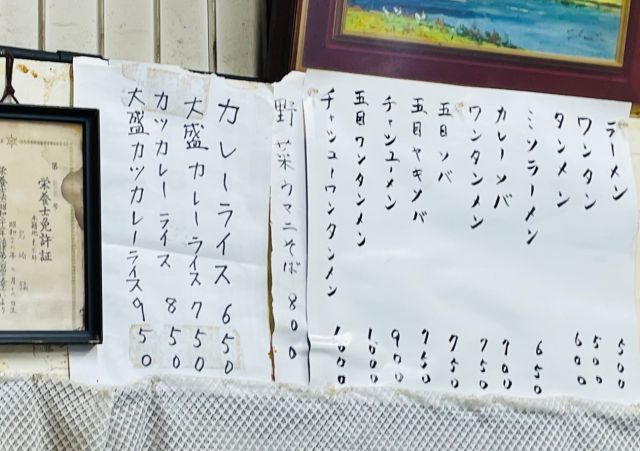 ラーメン 500
ワンタン 500
タンメン 600
ミソラーメン 650
カレーソバ 700
ワンタンメン 750
五目ソバ 750
五目ヤキソバ 750
チャシューメン 900
五目ワンタンメン 1000
チャシューワンタンメン 1000
野菜ウマニそば 800
カレーライス 650
大盛カレーライス 750
カツカレーライス 850
大盛カツカレーライス 950
栄養士免許証